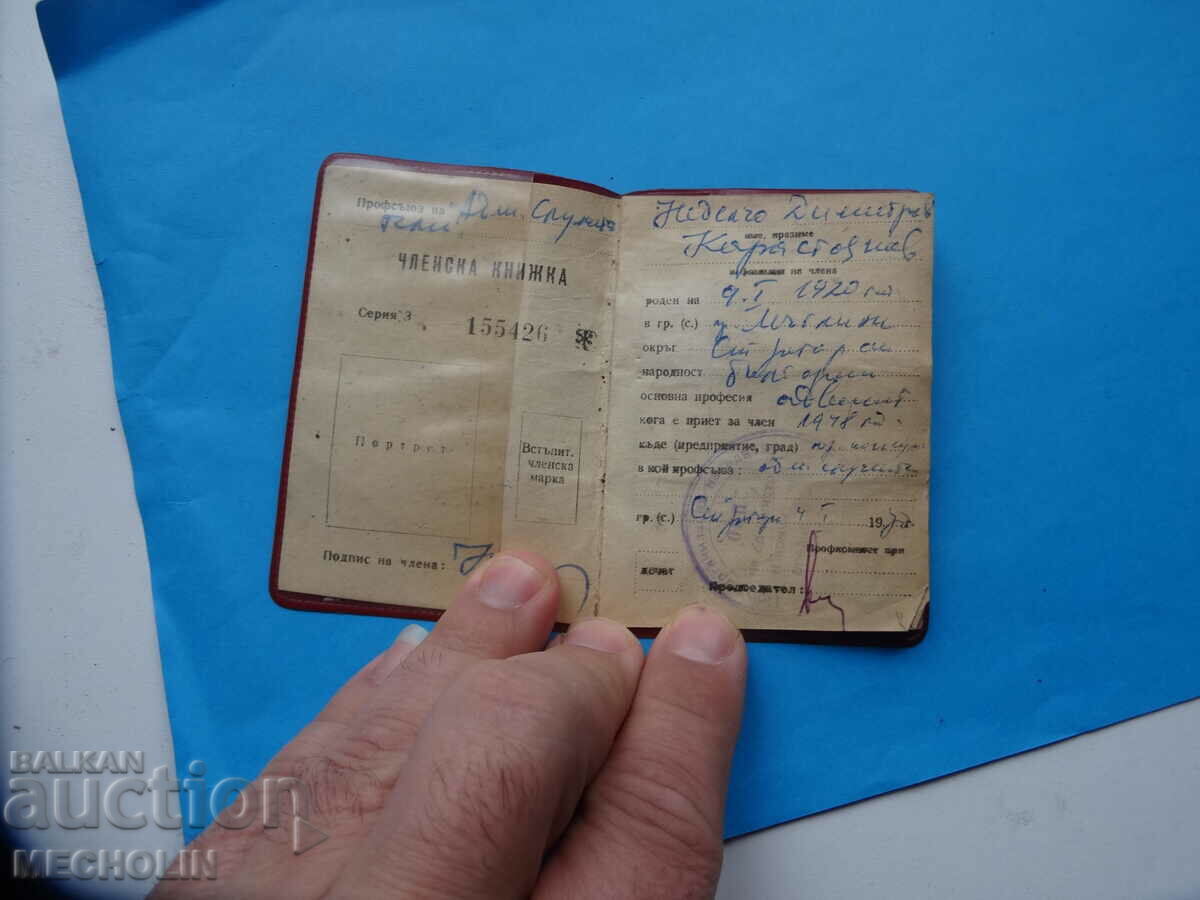 Профсъюз на Адм. Служи
тели
ЧЛЕНСКА КНИЖКА
Серия З 155426
Портрет
Встъпит.
членска
марка
Подпис на члена:
Неделчо Димитров
име, презиме
Карастоянов
и фамилия на члена
роден на 9.I. 1920 год
в гр. (с.)
окръг Ст. Загорски
народност българин
основна професия адвокат
кога е приет за член 1948 год.
къде (предприятие, град)
в кой профсъюз: адм. служители
гр. (с.) Ст. Загора 4 I 19
Профкомитет при
Председател:
BALKAN
auction
MECHOLIN